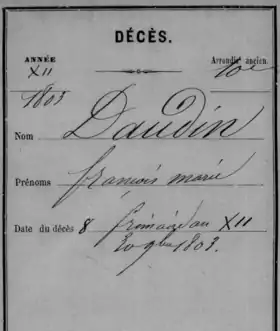 DÉCÈS.
ANNÉE Arrondit ancien.
XII 10e
1803
Nom Daudin
Prénoms françois marie
Date du décès 8 frimaire an XII
30 9bre 1803.